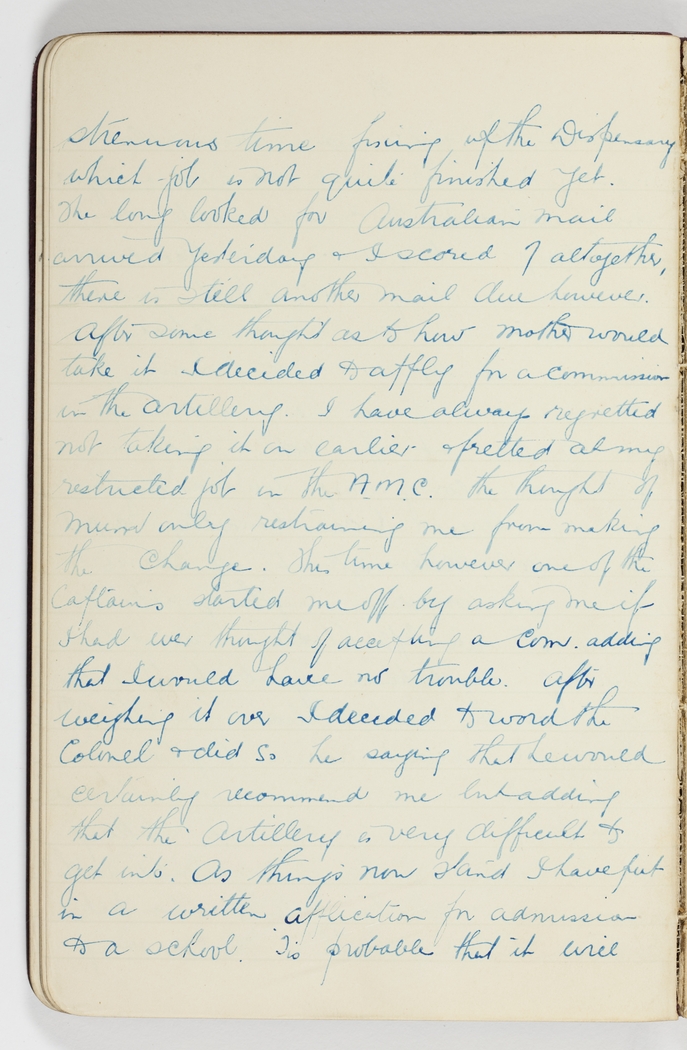 strenuous time fixing up the Dispensary
which job is not quite finished yet.
The long looked for Australian mail
arrived yesterday & I scored 7 altogether,
there is still another mail due however.
After some thought as to how mother would
take it I decided to apply for a commission
in the Artillery. I have always regretted
not taking it on earlier & fretted at my
restricted job in the A.M.C. the thought of
Mum only restraining me from making
the change. This time however one of the
Captains started me off by asking me if
I had ever thought of accepting a Com. adding
that I would have no trouble. After
weighing it over I decided to word the
Colonel & did so he saying that he would
certainly recommend me but adding
that the Artillery is very difficult to
get into. As things now stand I have put
in a written application for admission
to a school. Tis probable that it will